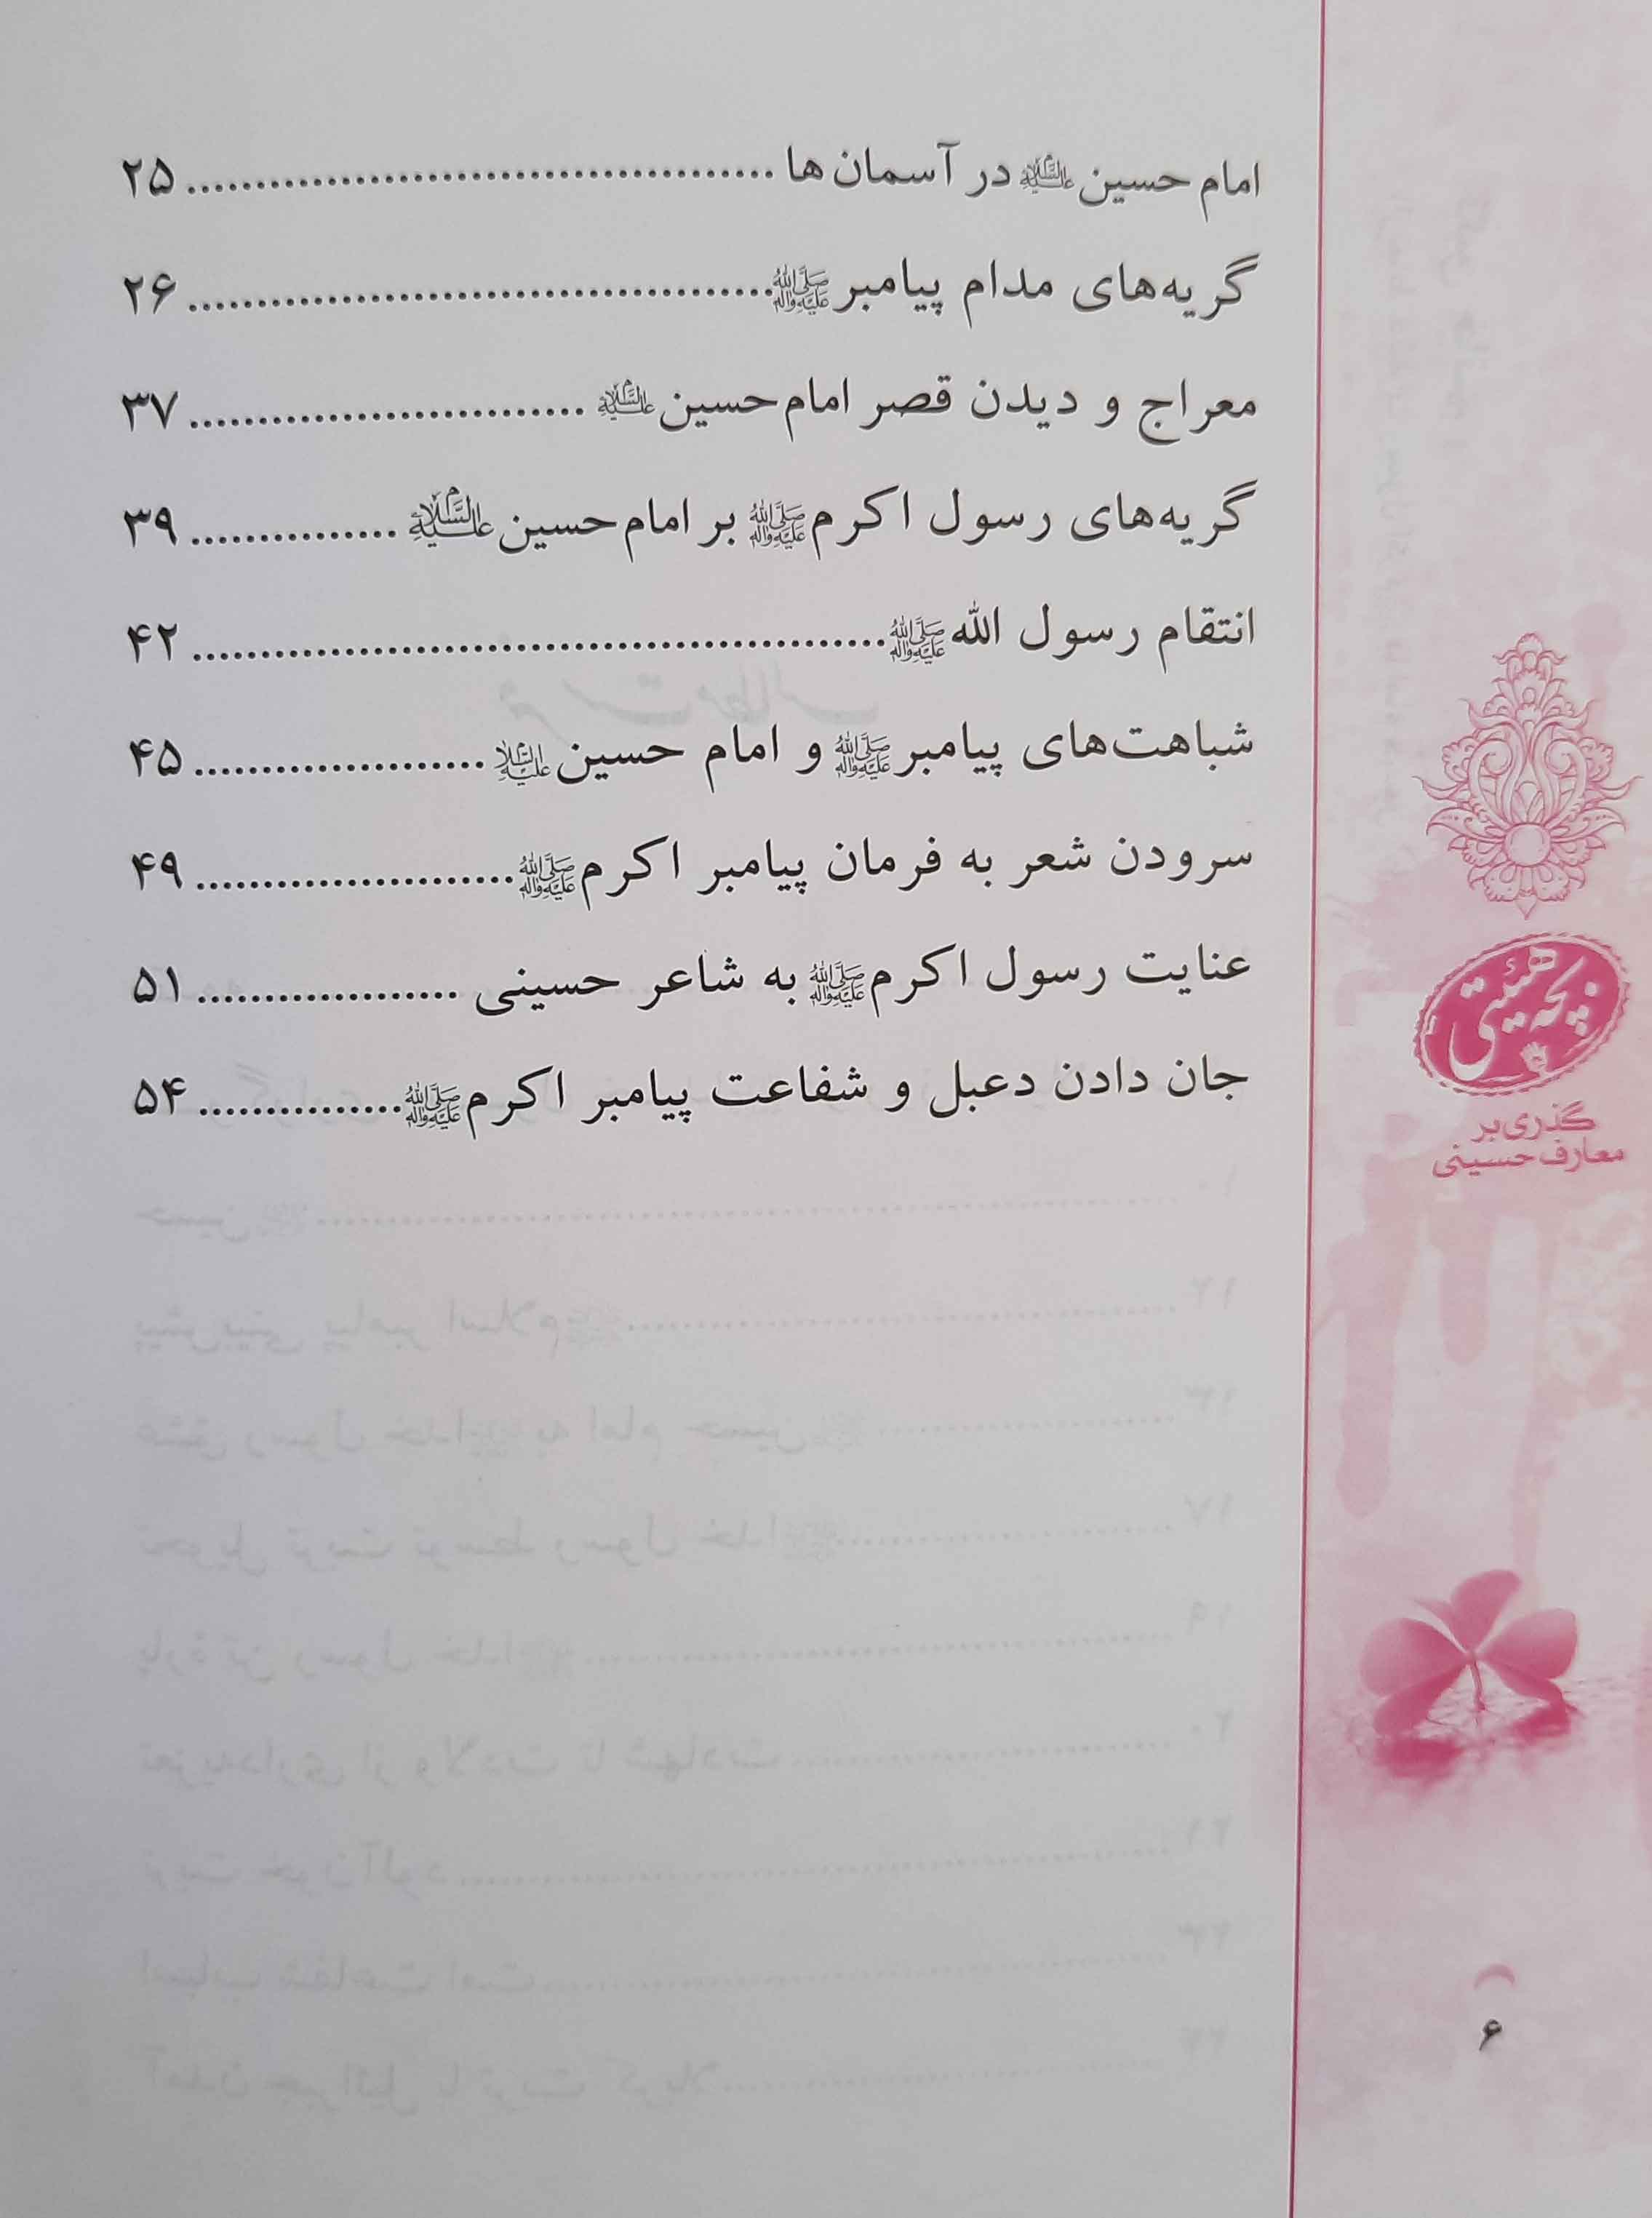 امام حسین علیه السلام در آسمان ها ........................................ ۲۵
گریه‌های مدام پیامبر صلی الله علیه وآله ........................................ ۲۶
معراج و دیدن قصر امام حسین علیه السلام ........................... ۳۷
گریه‌های رسول اکرم صلی الله علیه وآله بر امام حسین علیه السلام ............... ۳۹
انتقام رسول الله صلی الله علیه وآله ........................................ ۴۲
شباهت‌های پیامبر صلی الله علیه وآله و امام حسین علیه السلام ...................... ۴۵
سرودن شعر به فرمان پیامبر اکرم صلی الله علیه وآله ........................ ۴۹
عنایت رسول اکرم صلی الله علیه وآله به شاعر حسینی .................... ۵۱
جان دادن دعبل و شفاعت پیامبر اکرم صلی الله علیه وآله ............... ۵۴
بچه هیئتی
گذری بر
معارف حسینی
۶